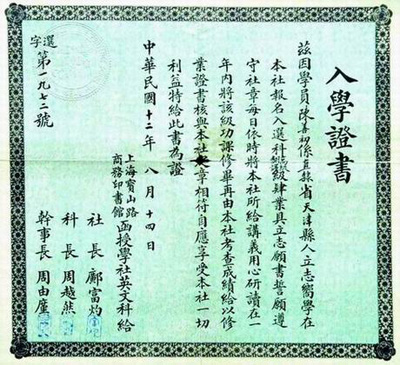 入學證書
茲因學員陳善初係直隸省天津縣人立志嚮學在
本社報名入選科級肄業具立志願書誓願遵
守社章每日依時將本社所給講義用心研讀在一
年內將該級功課修畢再由本社考查成績給以修
業證書核與本社章相符自應享受本社一切
利益特給此書為證
中華民國十二年八月十四日
上海寶山路
商務印書館
函授學社英文科給
社長 鄺富灼
科長 周越然
幹事長 周由廑
選字
第一九七二號